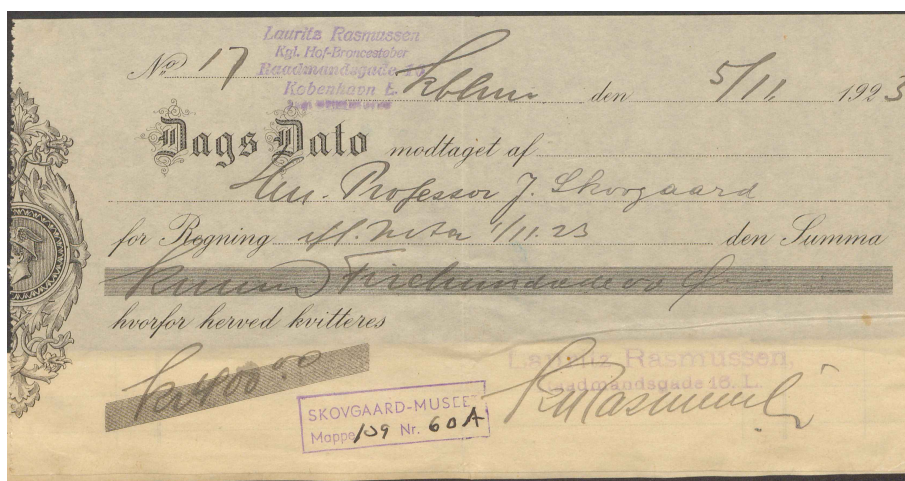 Lauritz Rasmussen
Kgl. Hof-Broncestøber
Raadmandsgade 16
København L.
No 17 Kbhvn den 5/11 1923
Dags Dato modtaget af
Hr. Professor J. Skovgaard
for Regning ifl. Nota 1/11.23 den Summa
Kroner Firehundrede 00 Ø
hvorfor herved kvitteres
Kr 400.00
Lauritz Rasmussen,
Raadmandsgade 16. L.
Rasmussen
SKOVGAARD-MUSEET
Mappe 109 Nr. 60A